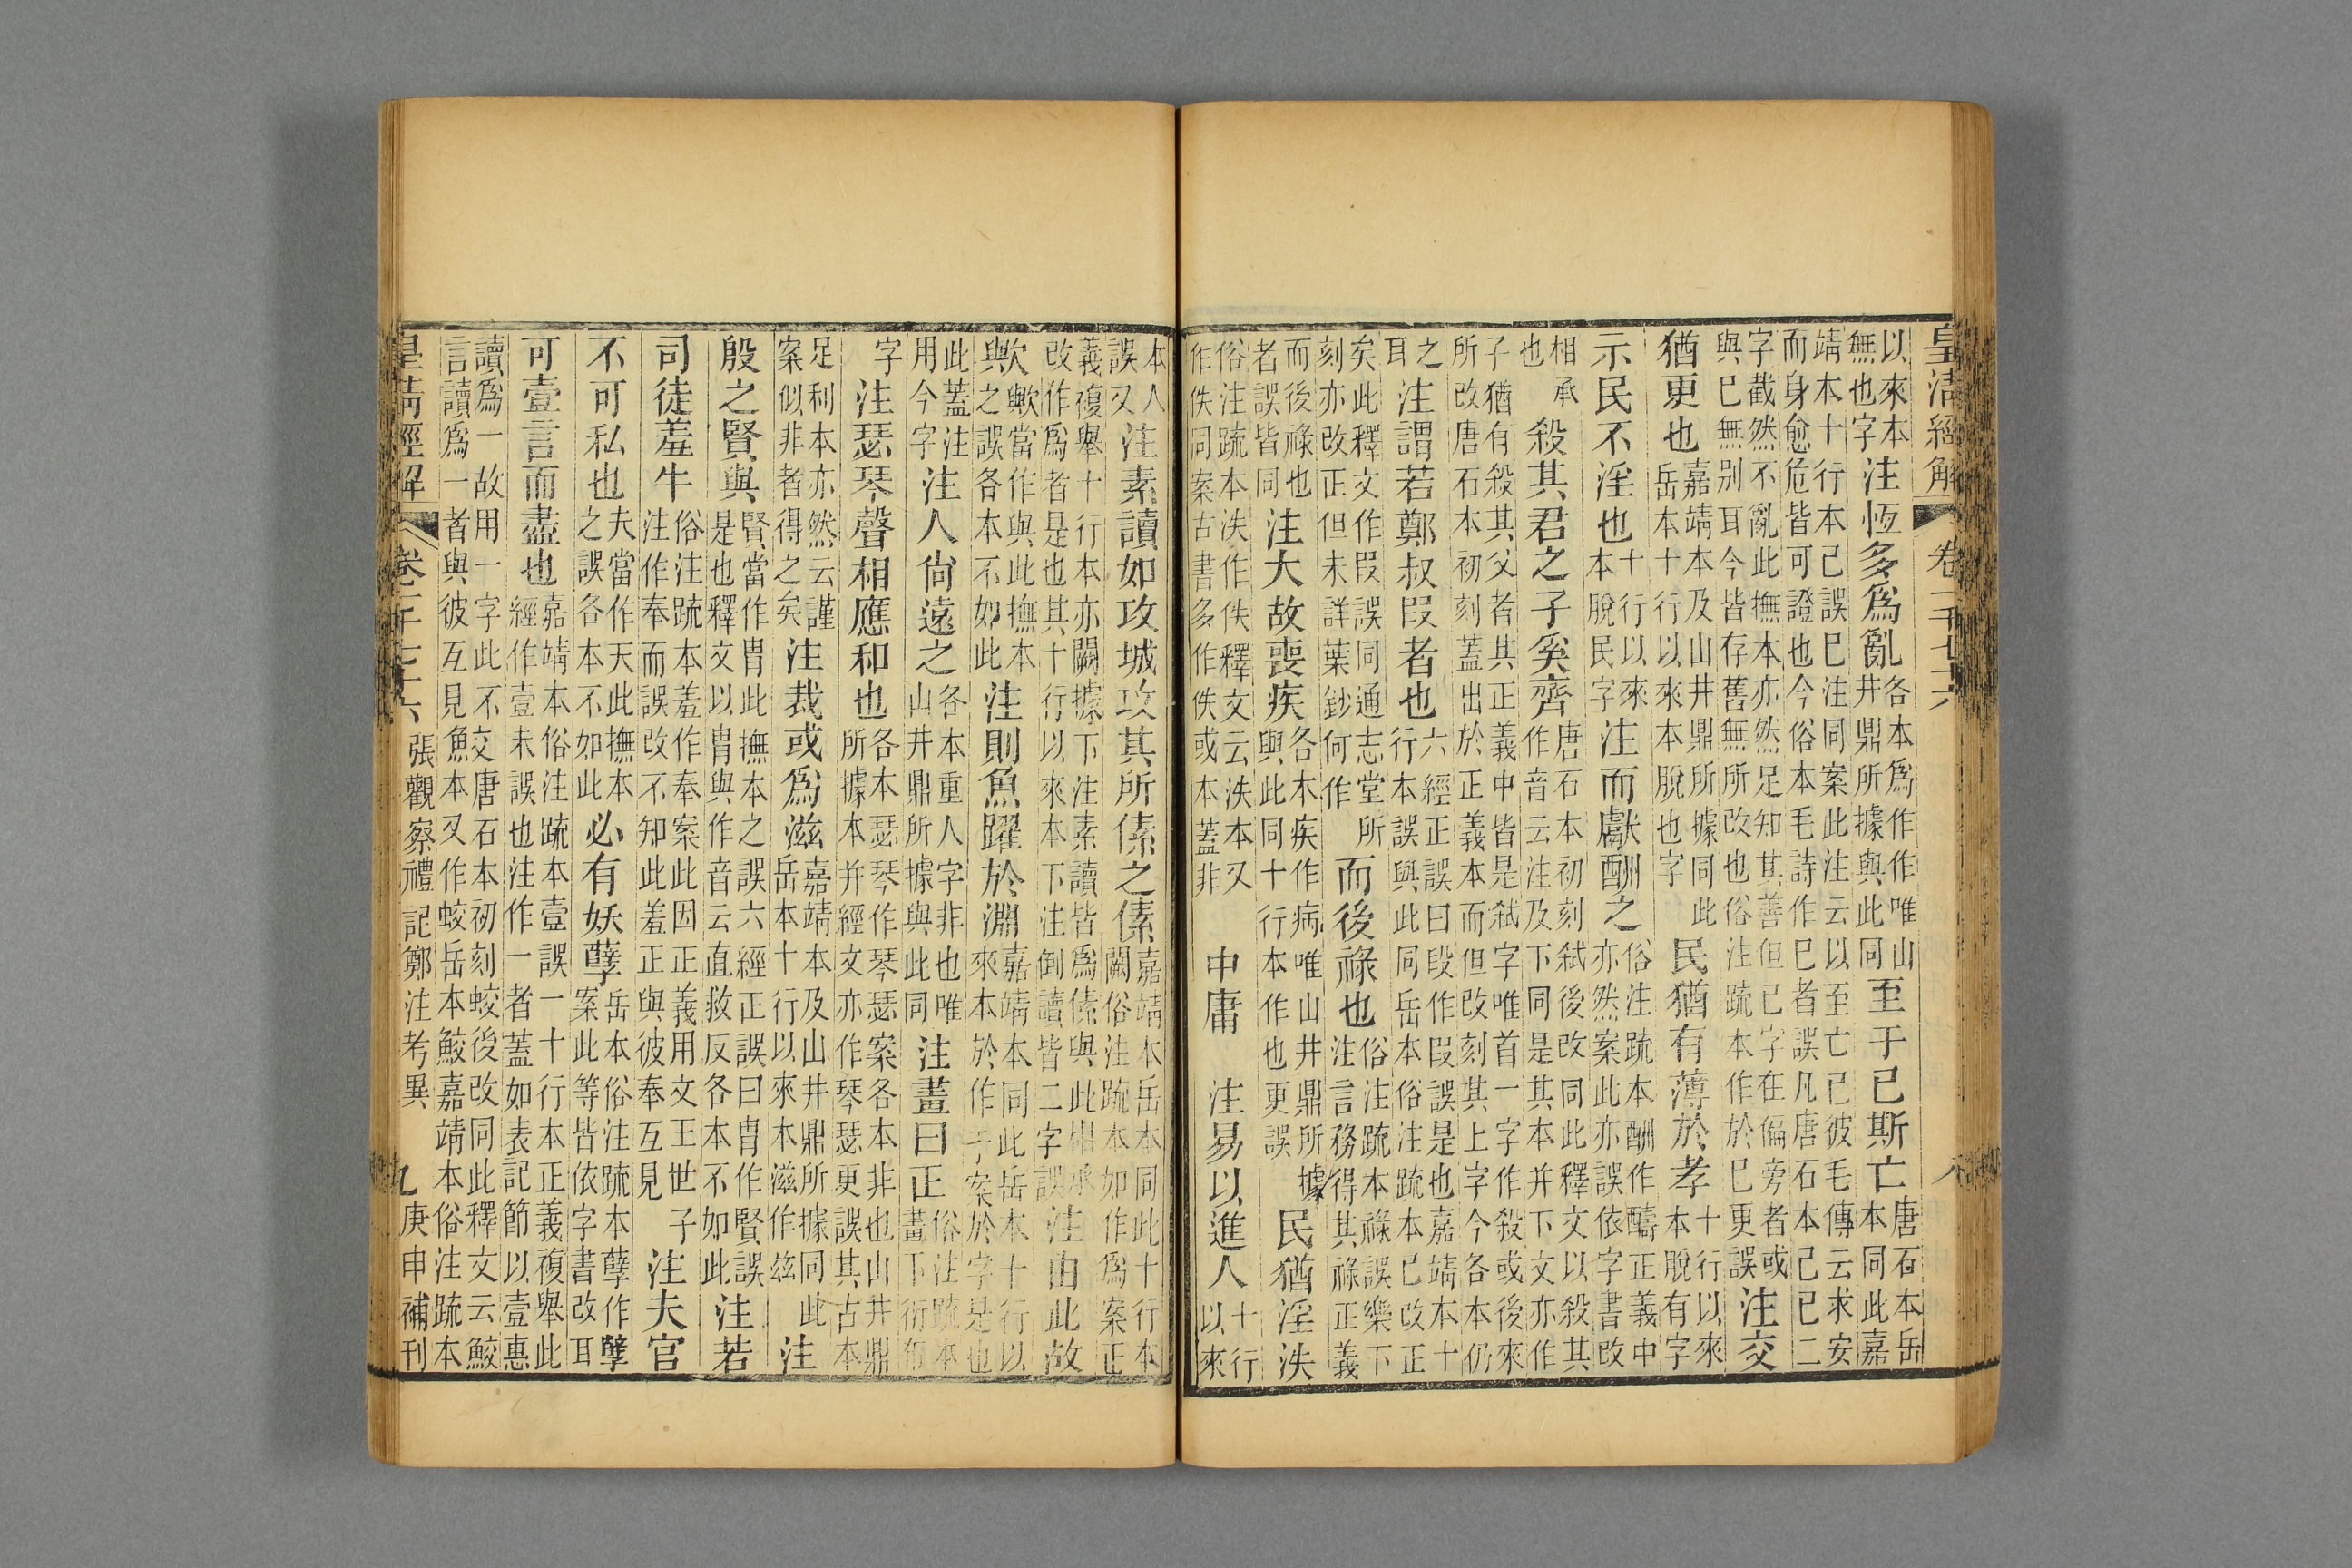 皇清經解 卷一千七十六 八
以來本
無也字
注恆多爲亂
各本爲作作唯山
井鼎所據與此同
至于已斯亡
唐石本岳
本同此嘉
靖本十行本已誤巳注同案此注云以至亡已彼毛傳云求安
而身愈危皆可證也今俗本毛詩作巳者誤凡唐石本已巳二
字截然不亂此撫本亦然足知其善但已字在偏旁者或
與巳無别耳今皆存舊無所改也俗注䟽本作於巳更誤
注交
猶更也
嘉靖本及山井鼎所據同此
岳本十行以來本脫也字
民猶有薄於孝
十行以來
本脫有字
示民不淫也
十行以來
本脫民字
注而獻酬之
俗注䟽本酬作醻正義中
亦然案此亦誤依字書改
相承
也
殺其君之子奚齊
唐石本初刻弒後改同此釋文以殺其
作音云注及下同是其本并下文亦作
子猶有殺其父者其正義中皆是弒字唯首一字作殺或後來
所改唐石本初刻蓋出於正義本而但改刻其上字今各本仍
之
耳
注謂若鄭叔叚者也
六經正誤曰段作叚誤是也嘉靖本十
行本誤與此同岳本俗注䟽本已改正
矣此釋文作叚誤同通志堂所
刻亦改正但未詳葉鈔何作
而後祿也
俗注䟽本祿誤樂下
注言務得其祿正義
而後祿也
者誤皆同
注大故喪疾
各本疾作病唯山井鼎所據
與此同十行本作也更誤
民猶淫泆
俗注䟽本泆作佚釋文云泆本又
作佚同案古書多作佚或本蓋非
中庸
注易以進人
十行
以來
本人
誤又
注素讀如攻城攻其所傃之傃
嘉靖本岳本同此十行本
闕俗注䟽本如作爲案正
義複舉十行本亦闕據下注素讀皆爲傃與此相承
改作爲者是也其十行以來本下注倒讀皆二字誤
注由此故
欤歟當作與此撫本
與之誤各本不如此
注則魚躍於淵
嘉靖本同此岳本十行以
來本於作于案於字是也
此蓋注
用今字
注人尙遠之
各本重人字非也唯
山井鼎所據與此同
注畫曰正
俗注䟽本
畫下衍布
字
注瑟琴聲相應和也
各本瑟琴作琴瑟案各本非也山井鼎
所據本并經文亦作琴瑟更誤其古本
足利本亦然云謹
案似非者得之矣
注裁或爲滋
嘉靖本及山井鼎所據同此
岳本十行以來本滋作兹
注
殷之賢與
賢當作胄此撫本之誤六經正誤曰胄作賢誤
是也釋文以胄與作音云直救反各本不如此
注若
司徒羞牛
俗注䟽本羞作奉案此因正義用文王世子
注作奉而誤改不知此羞正與彼奉互見
注夫官
不可私也
夫當作天此撫本
之誤各本不如此
必有妖孽
岳本俗注䟽本孽作孼
案此等皆依字書改耳
可壹言而盡也
嘉靖本俗注䟽本壹誤一十行本正義複舉此
經作壹未誤也注作一者蓋如表記節以壹惠
讀爲一故用一字此不
言讀爲一者與彼互見
鮫
唐石本初刻蛟後改同此釋文云鮫
本又作蛟岳本鮫嘉靖本俗注䟽本
皇清經解 卷一千七十六 張觀察禮記鄭注考異 九 庚申補刊